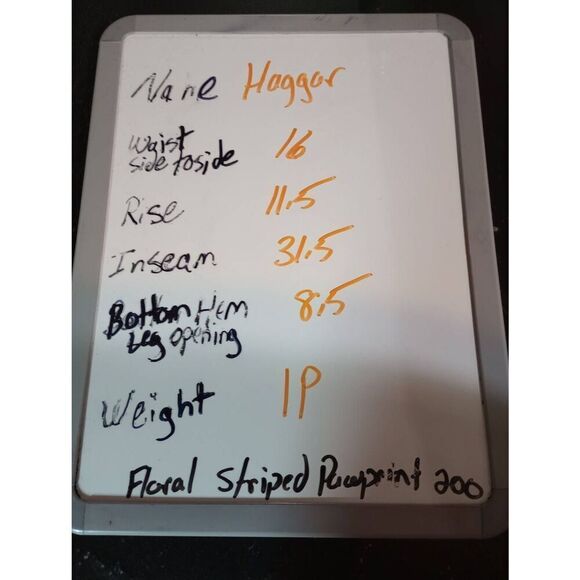 Name Haggar
Waist side to side 16
Rise 11.5
Inseam 31.5
Bottom Hem Leg opening 8.5
Weight 1P
Floral Striped Pawprint 200